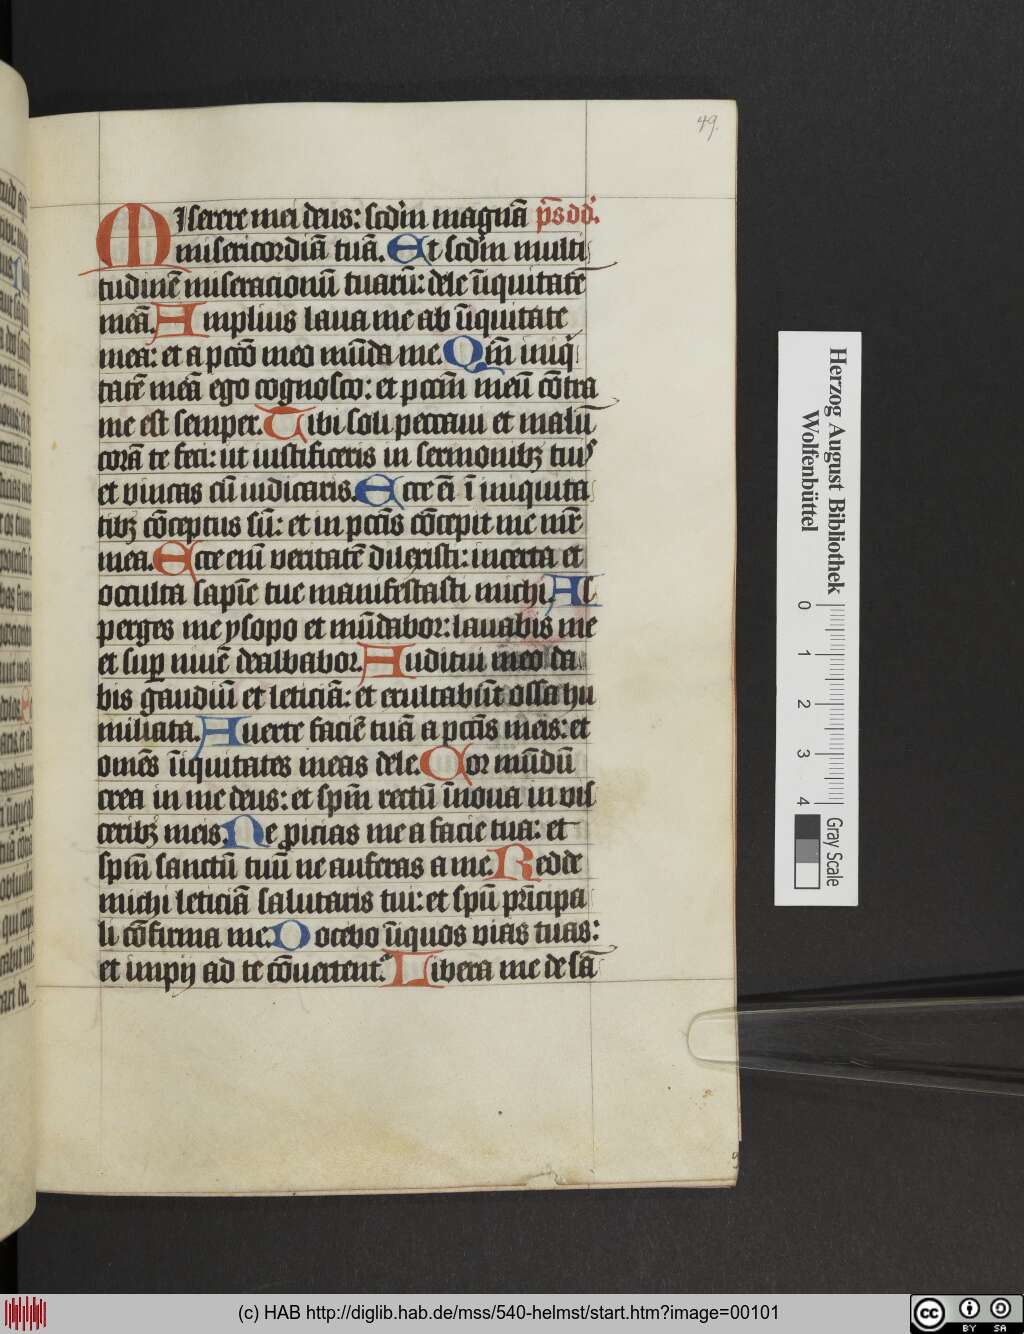 49.
MIserere mei deus: scdm̄ magnā ps̄ dd.
misericordiā tuā. Et scdm̄ multi
tudinē miseracionū tuarū: dele īiquitatē
meā. Amplius laua me ab īiquitate
mea: et a pctō meo mūda me. Qm̄ iniqi
tatē meā ego cognosco: et pctm̄ meū cōtra
me est semper. Tibi soli peccaui et malū
corā te feci: ut iustificeris in sermonibꝫ tuis
et vincas cū iudicaris. Ecce ei̅ ī iniquita
tibꝫ cōceptus sū: et in pctīs cōcepit me mr̄
mea. Ecce enī veritatē dilexisti: incerta et
occulta sapiē tue manifestasti michi. As
perges me ysopo et mūdabor: lauabis me
et suꝑ niuē dealbabor. Auditui meo da
bis gaudiū et leticiā: et exultabūt ossa hu
miliata. Auerte faciē tuā a pctīs meis: et
omēs īiquitates meas dele. Cor mūdū
crea in me deus: et spm̄ rectū īnoua in vis
ceribꝫ meis. Ne ꝓicias me a facie tua: et
spm̄ sanctū tuū ne auferas a me. Redde
michi leticiā salutaris tui: et spū prīcipa
li cōfirma me. Docebo īiquos vias tuas:
et impij ad te cōuertent̄. Libera me de sā
Herzog August Bibliothek
Wolfenbüttel
0 1 2 3 4
Gray Scale
(c) HAB http://diglib.hab.de/mss/540-helmst/start.htm?image=00101
cc BY SA